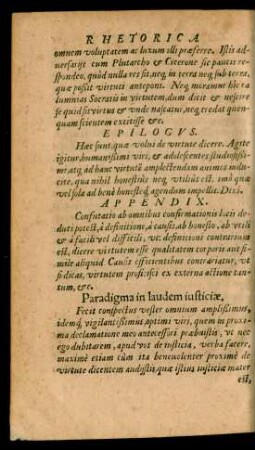 RHETORICA
omnem voluptatem ac luxum illi præferre. Istis ad-
uersarijs cum Plutarcho & Cicerone sic paucis re-
spondeo, quòd nulla res sit, neq, in terra neq sub terra,
quæ possit virtuti anteponi. Neq moramur hîc ca
lumnias Socratis in virtutem, dum dicit & nescire
se quid sit virtus & vnde nascatur, neq credat quen-
quam scientem extitisse &c.
EPILOGVS.
Hæc sunt, quæ volui de virtute dicere. Agite
igitur, humanissimi viri, & adolescentes studiosissi-
mi: atq ad hanc virtutē amplectendam animos indu-
cite, qua nihil honestius neq vtilius est. imò quæ
vel sola ad benè honesteq, agendum impellit. Dixi.
APPENDIX.
Confutatio ab omnibus confirmationis locis de-
duti potest, à definitione, à causis, ab honesto, ab vtili
& à facili vel difficili, vt: definitione contrarium
est, dicere virtutem esse qualitatem corporis aut si-
mile aliquid Causis efficientibus contrariatur, vt
si dicas, virtutem proficisci ex externa actione tan-
tum, &c.
Paradigma in laudem iusticiæ,
Fecit conspectus vester omnium amplissimus,
idemq, vigilantissimus optimi viri, quem in proxi-
ma declamatione meo antecessori præbuistis, vt nec
ego dubitarem, apud vos de iusticia, verba facere,
maximè etiam cùm ita beneuolenter proximè de
virtute dicentem audistis, quæ istius iusticiæ mater
est,